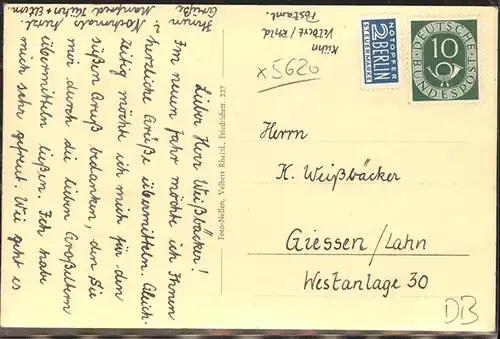 Lieber Herr Weißbäcker!
Im neuen Jahr möchte ich Ihnen
herzliche Grüße übermitteln. Gleich-
zeitig möchte ich mich für den
süßen Gruß bedanken, den Sie
mir durch die lieben Großeltern
übermitteln ließen. Ich habe
mich sehr gefreut. Wie geht es
Ihnen
Nochmals herzl.
Grüße
Manfred Kühn + Eltern.
Foto-Nellen, Velbert Rheinl., Friedrichstr. 227
Kühn
Velbert/Rhld
Postamt.
x 5620
NOTOPFER
2 BERLIN
STEUERMARKE
DEUTSCHE
10
BUNDESPOST
Herrn
K. Weißbäcker
Giessen/Lahn
Westanlage 30
DB